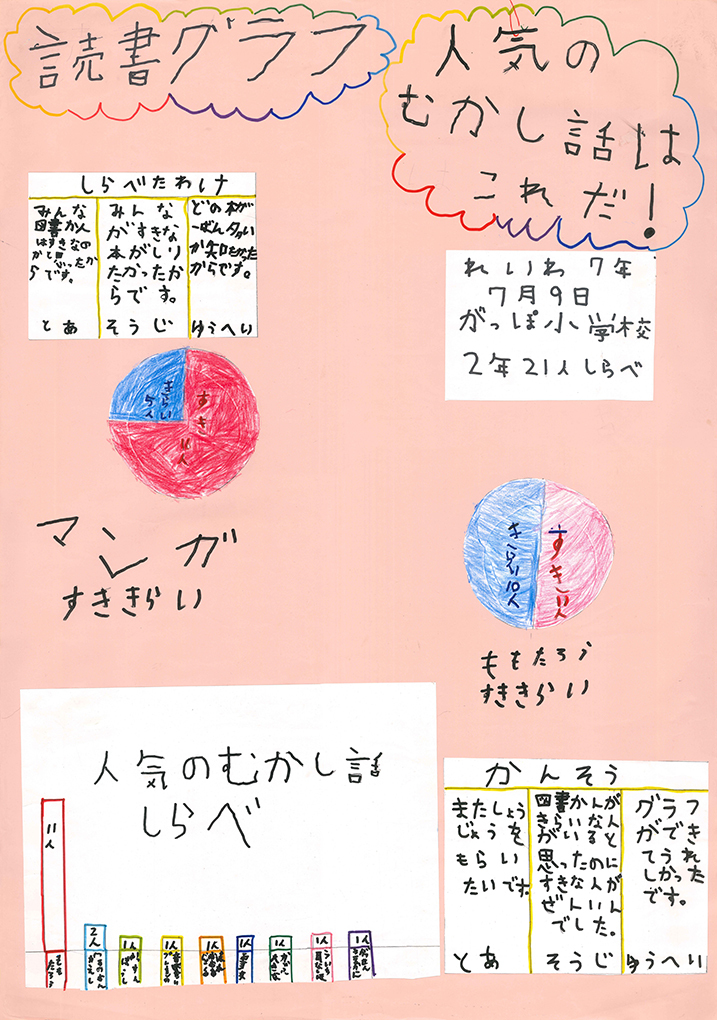 読書グラフ
人気の
むかし話は
これだ!
れいわ7年
7月9日
がっぽ小学校
2年21人しらべ
しらべたわけ
どの本が
一ばん多い
か知りたかった
からです。
ゆうへい
みんな
がすきな
本がしり
たかったか
らです。
そうじ
みんな
図書かん
はすきなの
かと思ったか
らです。
とあ
きらい
5人
すき
11人
マンガ
すききらい
きらい10人
すき11人
ももたろう
すききらい
人気のむかし話
しらべ
11人
ももたろう
2人
1人
1人
1人
1人
1人
1人
1人
かんそう
グラフ
ができ
てうれ
しかった
です。
ゆうへい
図書かんが
きらいな人
がいると
思ったのに
すきな人が
ぜんいん
でした。
そうじ
またしょう
じょうを
もらい
たいです。
とあ